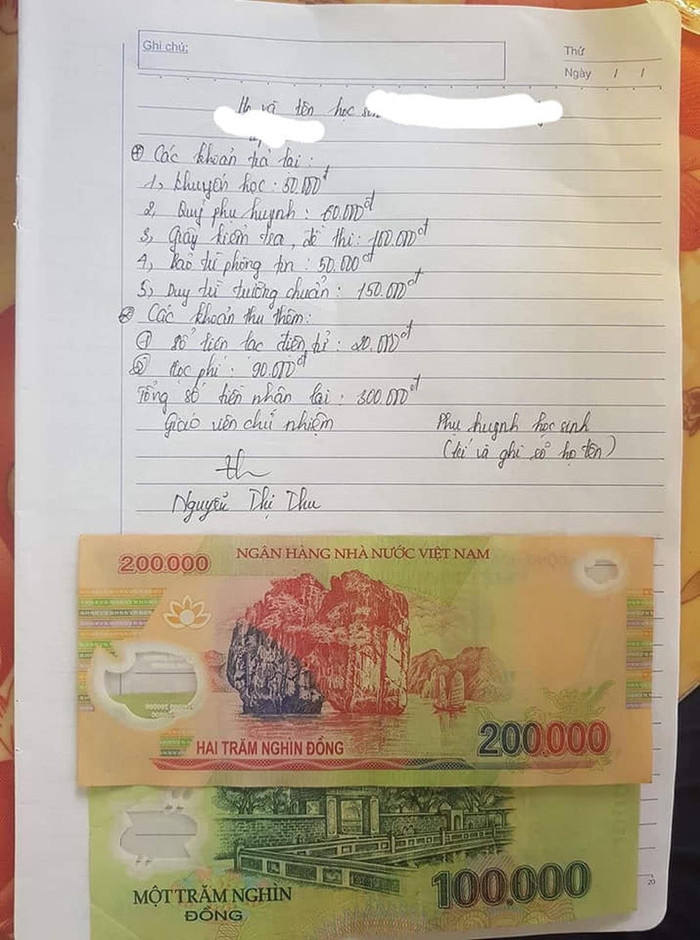 Ghi chú:
Thứ
Ngày / /
Họ và tên học sinh
⊕ Các khoản trả lại:
1, Khuyến học: 50.000đ
2, Quỹ phụ huynh: 60.000đ
3, Giấy kiểm tra, đề thi: 100.000đ
4, Bảo trì phòng tin: 50.000đ
5, Duy trì trường chuẩn: 150.000đ
⊕ Các khoản thu thêm:
① Sổ liên lạc điện tử: 20.000đ
② Học phí: 90.000đ
Tổng số tiền nhận lại: 300.000đ
Giáo viên chủ nhiệm
Phụ huynh học sinh
(kí và ghi rõ họ tên)
Th
Nguyễn Thị Thu
200.000
NGÂN HÀNG NHÀ NƯỚC VIỆT NAM
HAI TRĂM NGHÌN ĐỒNG
200.000
MỘT TRĂM NGHÌN
ĐỒNG
100.000
20